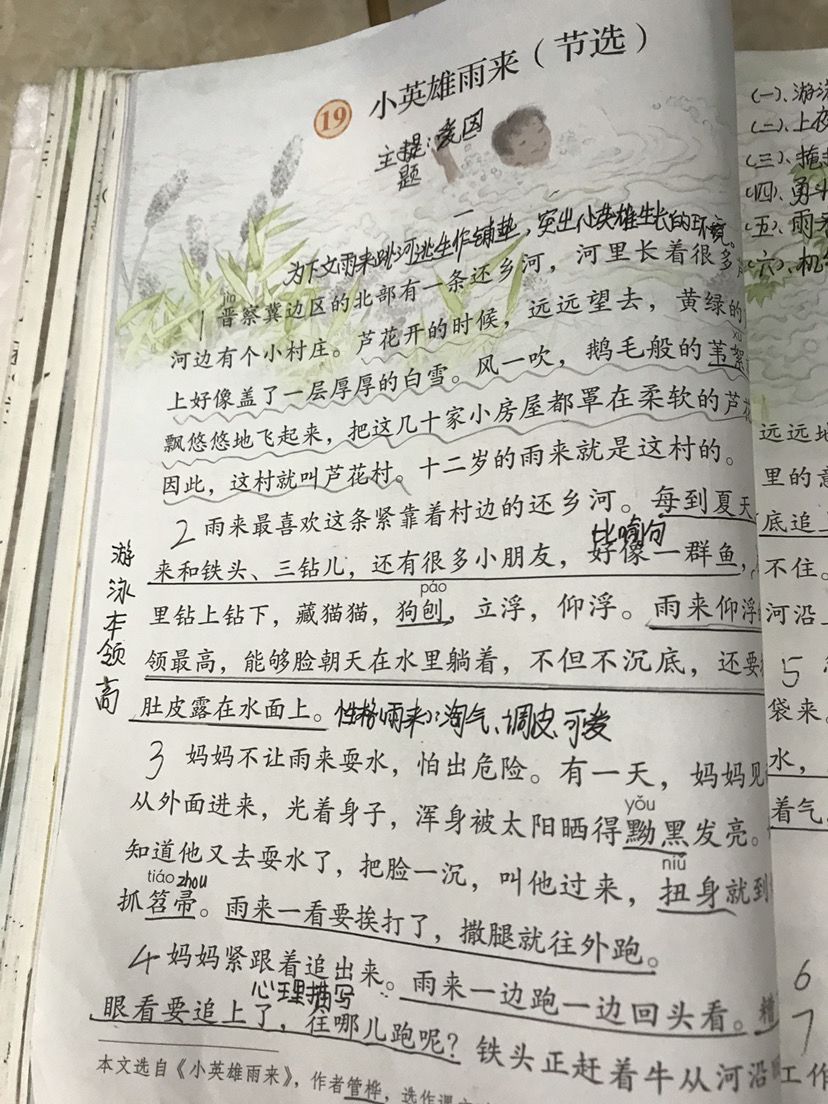 19 小英雄雨来（节选）
主题：爱国
一
为下文雨来跳河逃生作铺垫，突出小英雄生长的环境。
jìn
1 晋察冀边区的北部有一条还乡河，河里长着很多
河边有个小村庄。芦花开的时候，远远望去，黄绿的
xù
上好像盖了一层厚厚的白雪。风一吹，鹅毛般的苇絮
飘悠悠地飞起来，把这几十家小房屋都罩在柔软的芦花
因此，这村就叫芦花村。十二岁的雨来就是这村的。
2 雨来最喜欢这条紧靠着村边的还乡河。每到夏天
比喻句
来和铁头、三钻儿，还有很多小朋友，好像一群鱼，
páo
里钻上钻下，藏猫猫，狗刨，立浮，仰浮。雨来仰浮
领最高，能够脸朝天在水里躺着，不但不沉底，还要
肚皮露在水面上。性格(雨来)：淘气、调皮、可爱
游泳本领高
3 妈妈不让雨来耍水，怕出危险。有一天，妈妈见
yǒu
从外面进来，光着身子，浑身被太阳晒得黝黑发亮。
niǔ
知道他又去耍水了，把脸一沉，叫他过来，扭身就到
tiáo zhou
抓笤帚。雨来一看要挨打了，撒腿就往外跑。
4 妈妈紧跟着追出来。雨来一边跑一边回头看。糟
心理描写
眼看要追上了，往哪儿跑呢？铁头正赶着牛从河沿
本文选自《小英雄雨来》，作者管桦，选作课文
(一)、游泳
(二)、上夜
(三)、掩
(四)、勇斗
(五)、雨
(六)、机
远远地
里的意
底追上
不住。
河沿上
5
袋来。
水，
着气，
6
7
工作